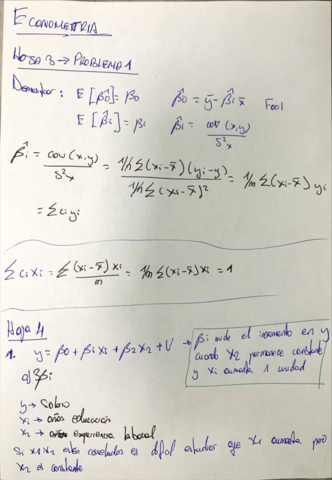 ECONOMETRIA
HOJA 3 → PROBLEMA 1
Demostrar: E[β̂0] = β0 β̂0 = ȳ - β̂i x̄ Facil
E[β̂i] = βi β̂i = cov(x,y) / S²x
β̂i = cov(x,y) / S²x = 1/n Σ(xi - x̄)(yi - y) / 1/n Σ(xi - x̄)² = 1/m Σ(xi - x̄) yi
= Σ ci yi
Σ ci xi = Σ (xi - x̄) xi / m = 1/m Σ(xi - x̄) xi = 1
Hoja 4
1. y = β0 + βi xi + β2 x2 + U → βi mide el incremento en y
cuando x2 permanece constante
y xi aumenta 1 unidad
a) βi
y →
xi → años educación
x2 → experiencia laboral
Si x1 x2 estan es dificil estudiar que x1 aumenta pero
x2 es constante